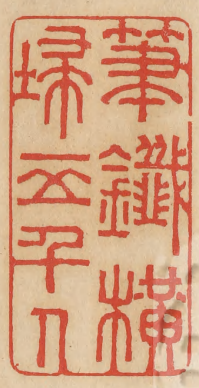 筆鐵橫
掃五千人